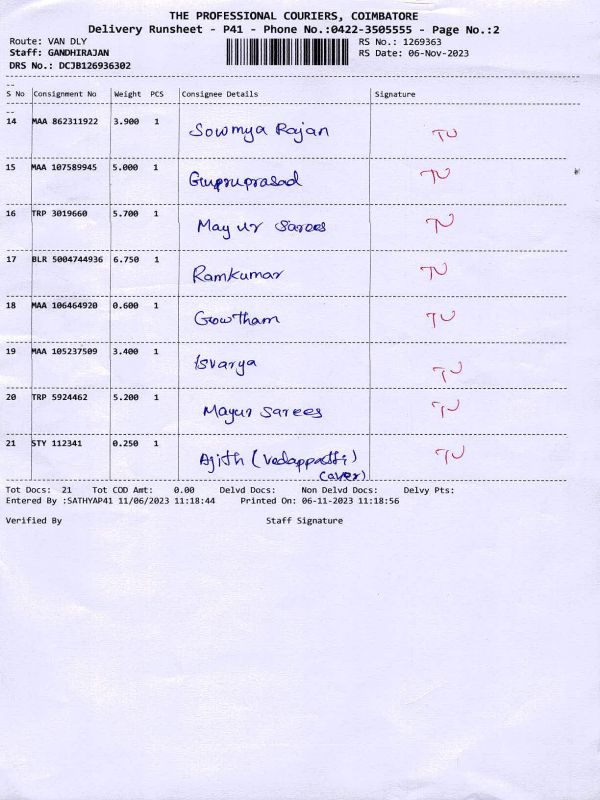 THE PROFESSIONAL COURIERS, COIMBATORE
Delivery Runsheet - P41 - Phone No.:0422-3505555 - Page No.:2
Route: VAN DLY RS No.: 1269363
Staff: GANDHIRAJAN RS Date: 06-Nov-2023
DRS No.: DCJB126936302
S No Consignment No Weight PCS Consignee Details Signature
14 MAA 862311922 3.900 1 Sowmya Rajan TU
15 MAA 107589945 5.000 1 Guruprasad TU
16 TRP 3019660 5.700 1 Mayur Sarees TU
17 BLR 5004744936 6.750 1 Ramkumar TU
18 MAA 106464920 0.600 1 Gowtham TU
19 MAA 105237509 3.400 1 Isvarya TU
20 TRP 5924462 5.200 1 Mayur Sarees TU
21 STY 112341 0.250 1 Ajith (Vedappatti) TU
(cover)
Tot Docs: 21 Tot COD Amt: 0.00 Delvd Docs: Non Delvd Docs: Delvy Pts:
Entered By :SATHYAP41 11/06/2023 11:18:44 Printed On: 06-11-2023 11:18:56
Verified By Staff Signature